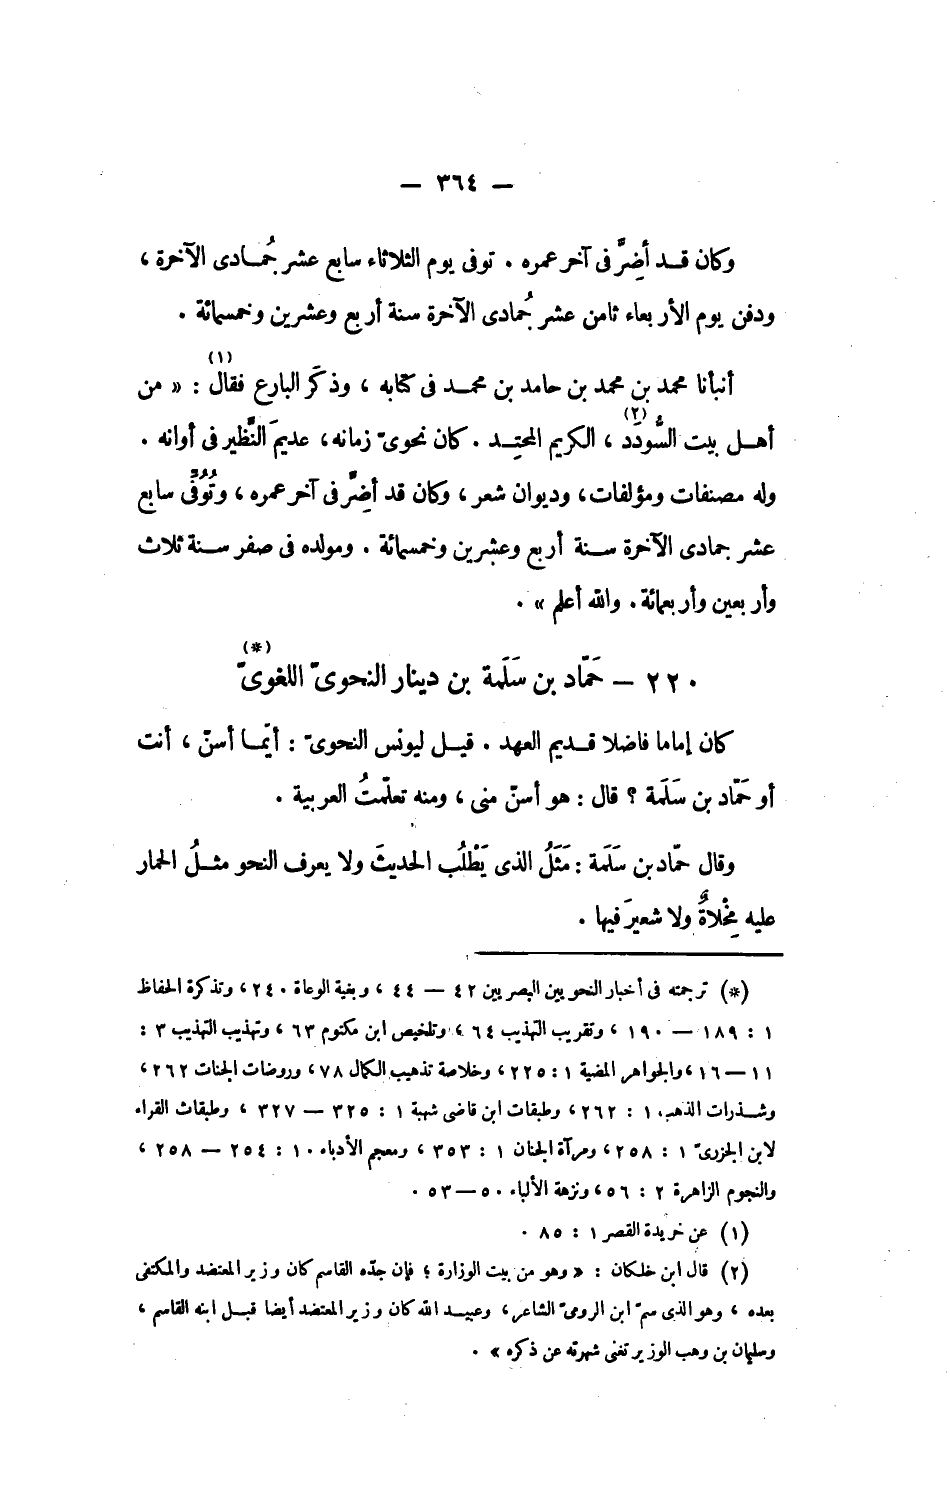 — ٣٦٤ —
وكان قـد أضِرَّ فى آخر عمره . توفى يوم الثلاثاء سابع عشر جُمـادى الآخرة ،
ودفن يوم الأربعاء ثامن عشر جُمادى الآخرة سنة أربع وعشرين وخمسمائة .
أنبأنا محمد بن محمد بن حامد بن محمـد فى كتابه ، وذكَر البارع فقال (١) : « من
أهـل بيت السُّودَد (٢) ، الكريم المحتِـد . كان نحوىّ زمانه، عديمَ النَّظير فى أوانه .
وله مصنفات ومؤلفات، وديوان شعر، وكان قد أضِرَّ فى آخر عمره ، وتُوُفِّى سابع
عشر جمادى الآخرة سـنة أربع وعشرين وخمسمائة . ومولده فى صفر سـنة ثلاث
وأربعين وأربعمائة. والله أعلم » .
٢٢٠ — حَمّاد بن سَلَمة بن دينار النحوىّ اللغوىّ (*)
كان إماما فاضلا قـديم العهد . قيـل ليونس النحوىّ : أيّمـا أسنّ ، أنت
أو حَمّاد بن سَلَمة ؟ قال : هو أسنّ منى ، ومنه تعلّمتُ العربية .
وقال حمّاد بن سَلَمة : مَثَلُ الذى يَطْلُب الحديثَ ولا يعرف النحو مثـلُ الحمار
عليه مِخْلاةٌ ولا شعيرَ فيها .
(*) ترجمته فى أخبار النحويين البصريين ٤٢ — ٤٤ ، وبغية الوعاة ٢٤٠ ، وتذكرة الحفاظ
١ : ١٨٩ — ١٩٠ ، وتقريب التهذيب ٦٤ ، وتلخيص ابن مكتوم ٦٣ ، وتهذيب التهذيب ٣ :
١١ — ١٦ ، والجواهر المضية ١ : ٢٢٥ ، وخلاصة تذهيب الكمال ٧٨ ، وروضات الجنات ٢٦٢ ،
وشـذرات الذهب ١ : ٢٦٢ ، وطبقات ابن قاضى شهبة ١ : ٣٢٥ — ٣٢٧ ، وطبقات القراء
لابن الجزرىّ ١ : ٢٥٨ ، ومرآة الجنان ١ : ٣٥٣ ، ومعجم الأدباء ١٠ : ٢٥٤ — ٢٥٨ ،
والنجوم الزاهرة ٢ : ٥٦ ، ونزهة الألباء ٥٠ — ٥٣ .
(١) عن خريدة القصر ١ : ٨٥ .
(٢) قال ابن خلكان : « وهو من بيت الوزارة ؛ فإن جدّه القاسم كان وزير المعتضد والمكتفى
بعده ، وهو الذى سمّ ابن الرومىّ الشاعر ، وعبيـد الله كان وزير المعتضد أيضا قبـل ابنه القاسم ،
وسليمان بن وهب الوزير تغنى شهرته عن ذكره » .